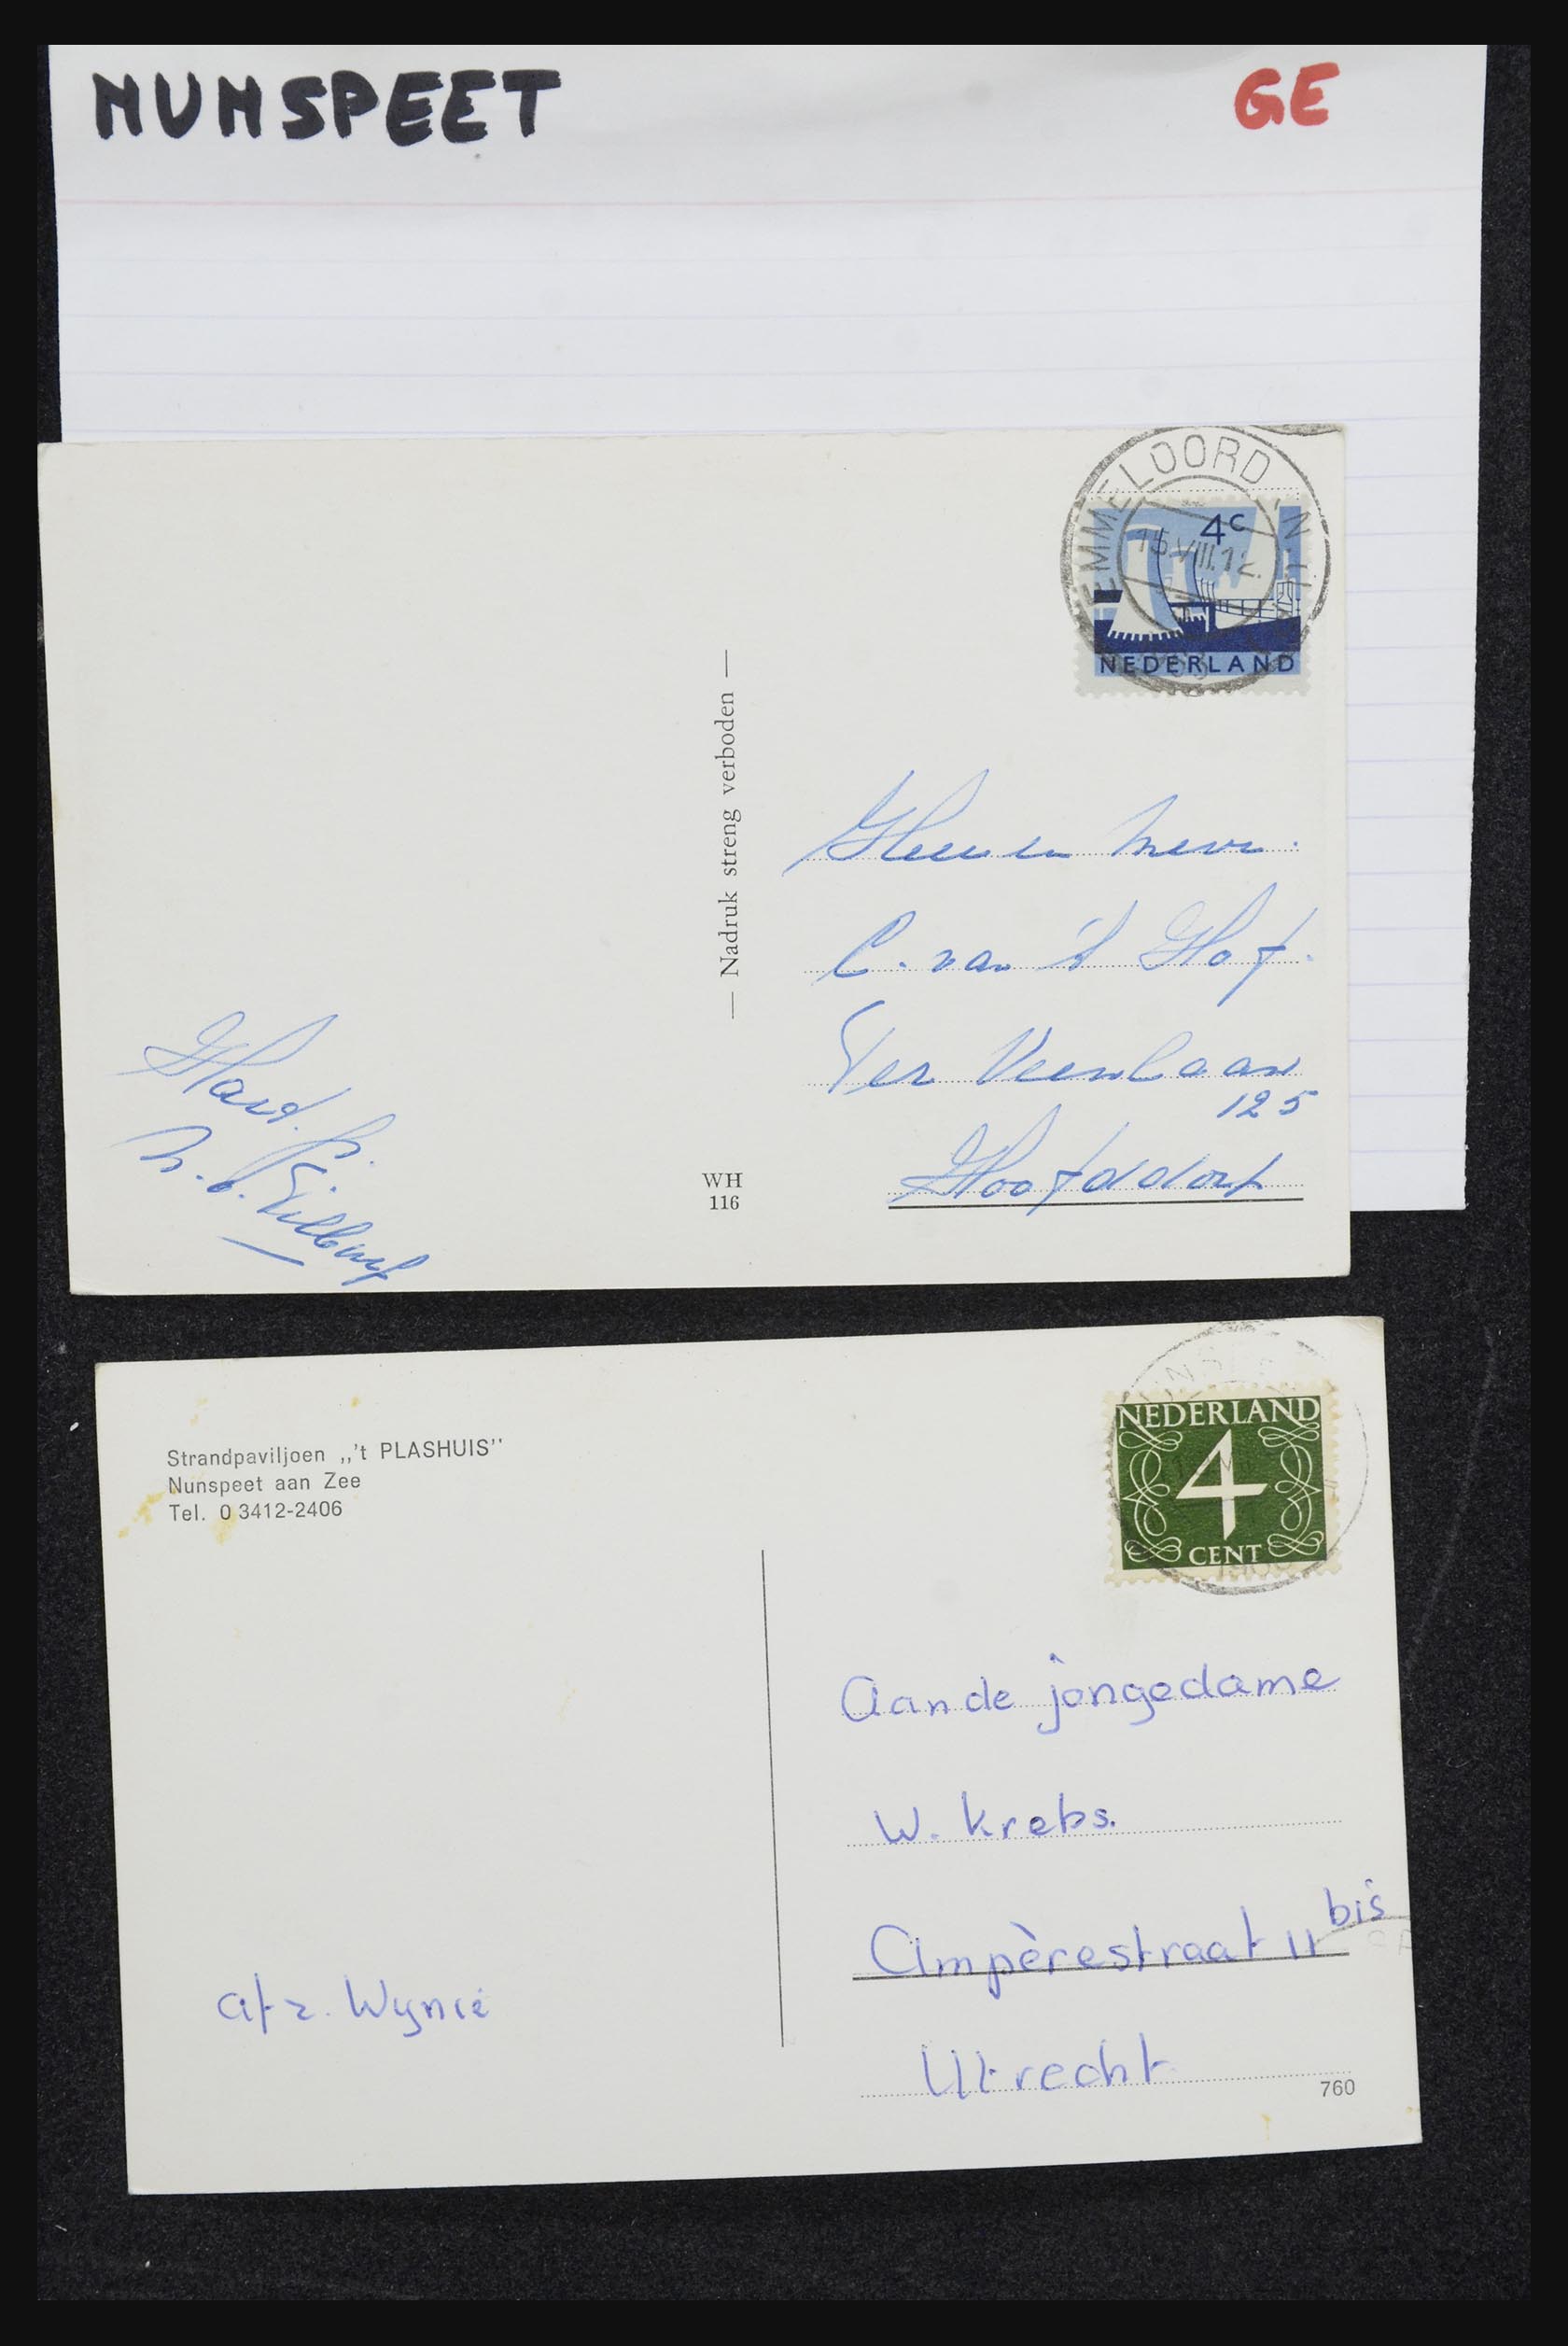 NUNSPEET
GE
EMMELOORD
4c
15.VIII.12.
NEDERLAND
— Nadruk streng verboden —
Heer en Mevr.
C. van 't Hof.
Ter Veenlaan
125
Hoofddorp
Hart. gr.
WH
116
NEDERLAND
4
CENT
Strandpaviljoen „'t PLASHUIS''
Nunspeet aan Zee
Tel. 0 3412-2406
Aan de jongedame
W. Krebs.
Ampèrestraat 11 bis
Utrecht
afz. Wynie
760